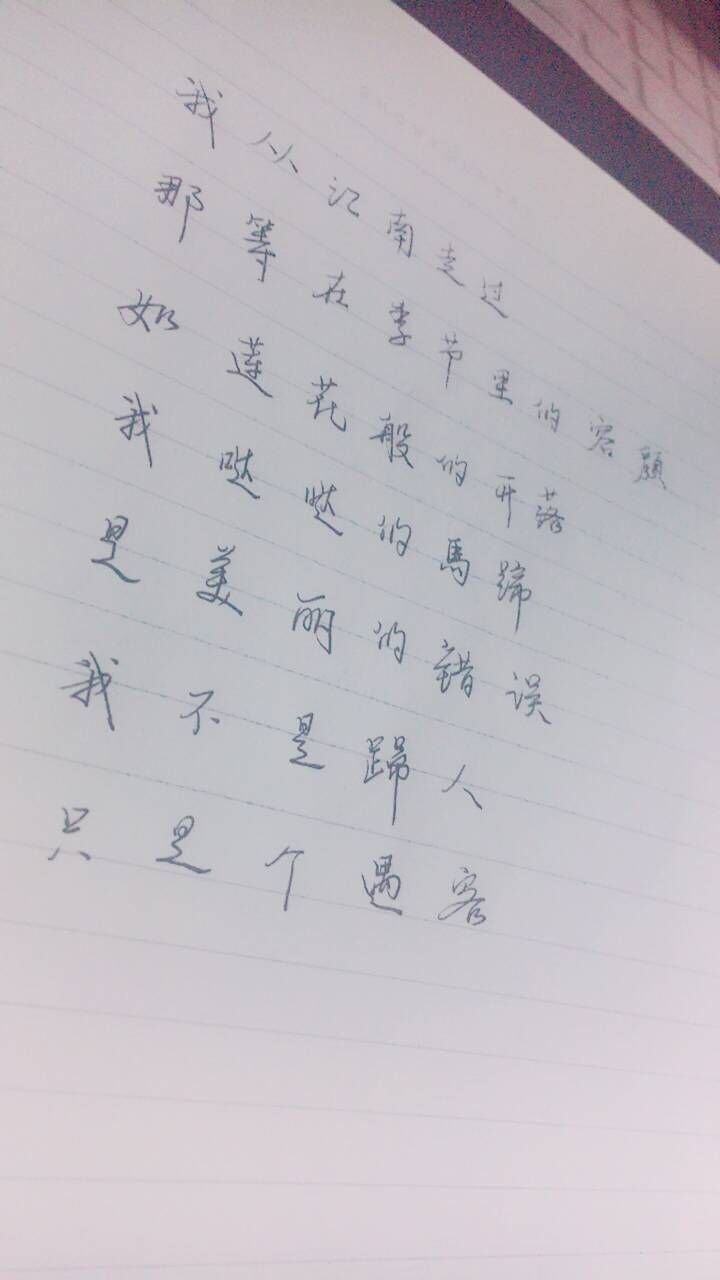 我从江南走过
那等在季节里的容颜
如莲花般的开落
我哒哒的馬蹄
是美丽的错误
我不是歸人
只是个過客